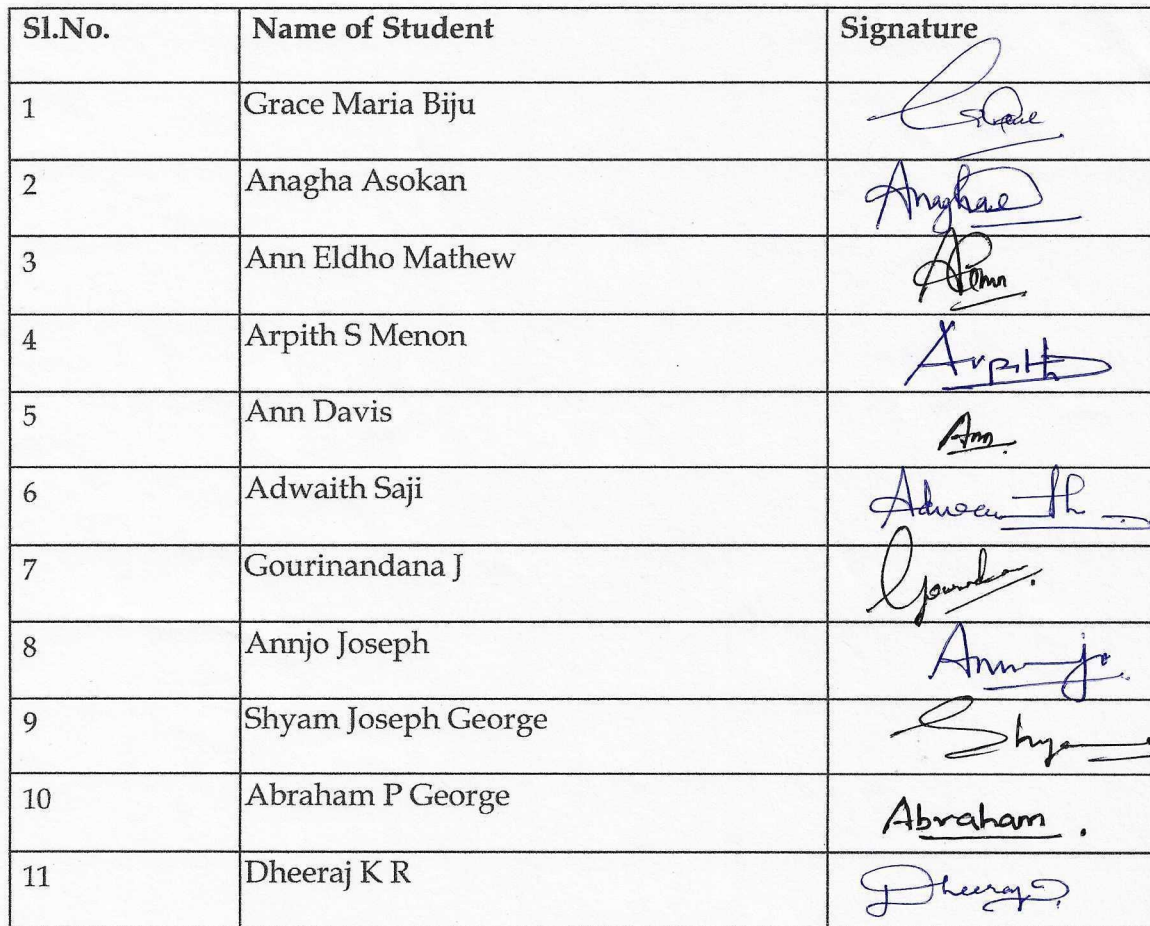 Sl.No. Name of Student Signature
1 Grace Maria Biju Grace
2 Anagha Asokan Anagha
3 Ann Eldho Mathew Ann
4 Arpith S Menon Arpith
5 Ann Davis Ann
6 Adwaith Saji Adwaith
7 Gourinandana J
8 Annjo Joseph Annjo
9 Shyam Joseph George Shyam
10 Abraham P George Abraham.
11 Dheeraj K R Dheeraj